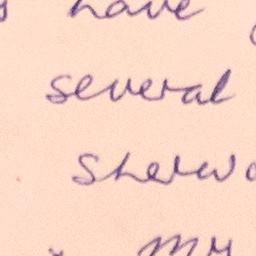 have
several
Sherwo
My